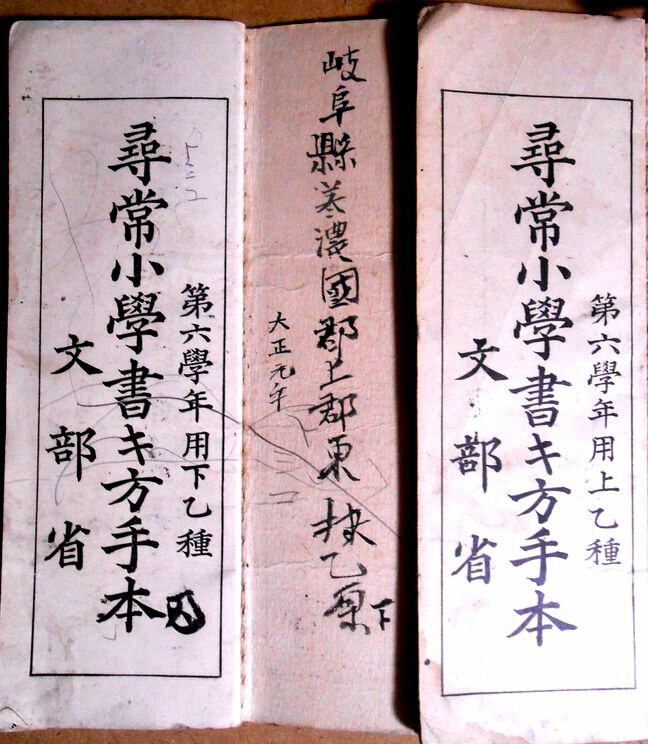 第六學年用上乙種
尋常小學書キ方手本
文部省
岐阜縣美濃國郡上郡東村乙原下
大正元年
第六學年用下乙種
尋常小學書キ方手本
文部省